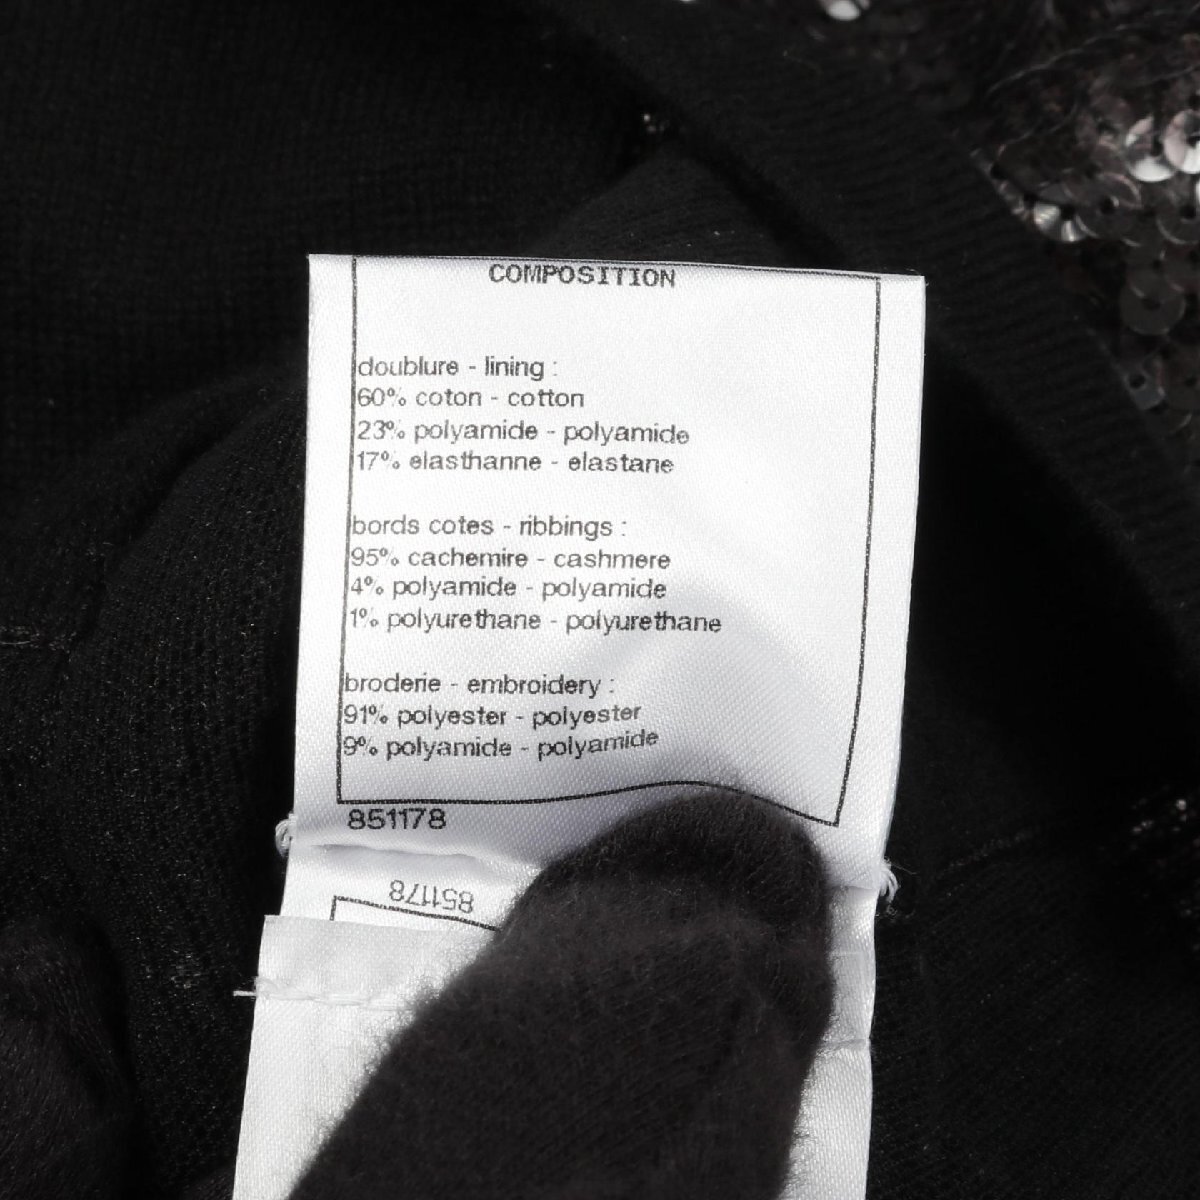 COMPOSITION
doublure - lining :
60% coton - cotton
23% polyamide - polyamide
17% elasthanne - elastane
bords cotes - ribbings :
95% cachemire - cashmere
4% polyamide - polyamide
1% polyurethane - polyurethane
broderie - embroidery :
91% polyester - polyester
9% polyamide - polyamide
851178
851178